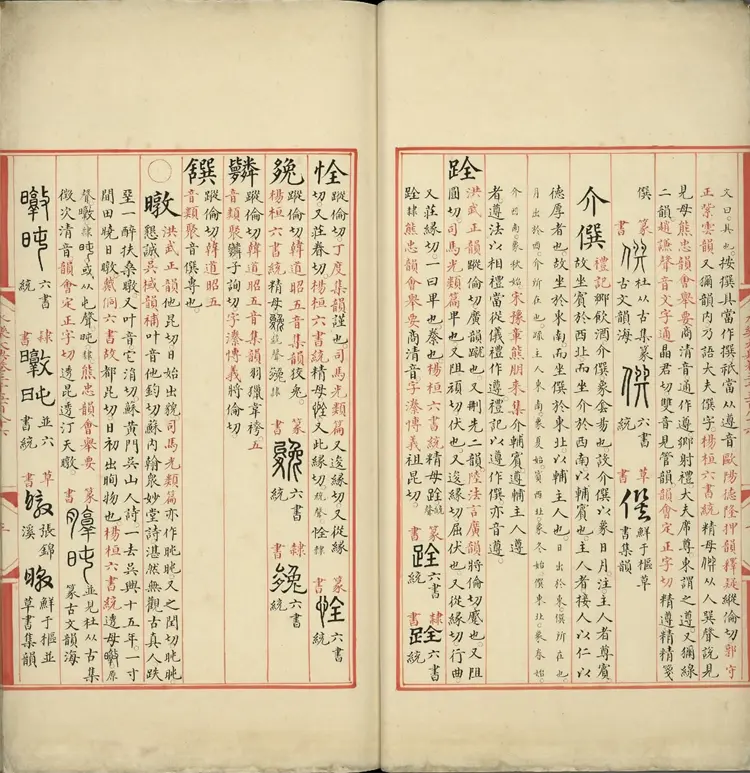 文曰。具也按撰具當作撰祇當从遵音歐陽德隆押韻釋疑縱倫切郭守
正紫雲韻又獮韻內乃語大夫僎字楊桓六書統精母僎从人巽聲說見
見母熊忠韻會舉要商清音通作遵鄉射禮大夫席尊東謂之遵又獮線
二韻趙謙聲音文字通晶君切雙音見管韻韻會定正字切精遵精精箋
僎 篆書 僎 杜从古集篆古文韻海 僎 六書統 草書 僎 鮮于樞草書集韻
介僎 禮記鄉飲酒介僎象侌昜也設介僎以象日月注主人者尊賓
故坐賓於西北而坐介於西南以輔賓也主人者接人以仁以
德厚者也故坐於東南而坐僎於東北以輔主人也。日出於東僎所在也
月出於西。介所在也。
介西南象秋始 宋豫章熊朋來集介輔賓遵輔主人遵
者遵法以相禮當從儀禮作遵。禮記以遵作僎亦音遵。
跧 洪武正韻蹤倫切廣韻蹴也。又刪先二韻陸法言廣韻將倫切蹙也。又阻
圓切司馬光類篇卑也又阻頑切伏也又逡緣切屈伏也又從緣切行曲
又莊緣切。一曰卑也拳也楊桓六書統精母跧統聲
跧隸熊忠韻會舉要商清音字溙博義祖昆切。
篆書 跧 六書統 隸書 跧 六書統
恮 蹤倫切丁度集韻謹也司馬光類篇又逡緣切又從緣
切又莊眷切楊桓六書統精母恮又此緣切統聲恮隸
篆書 恮 六書統
㕙 蹤倫切韓道昭五音集韻狡兔。
楊桓六書統精母㕙統聲㕙隸
篆書 㕙 六書統 隸書 㕙 六書統
蹤倫切韓道昭五音集韻羽獵韋袴。五
音類聚子詢切字溙博義將倫切
饌 蹤倫切韓道昭五
音類聚音僎專也。
○暾 洪武正韻他昆切日始出貌司馬光類篇亦作旽旽。又之閏切旽旽
懇誠吳棫韻補叶音他鈞切蘇內翰泉妙堂詩湛然無觀古真人趺
坐一醉扶桑暾又叶音它涓切蘇黃門吳山人詩一去吳興十五年。一寸
間田曉日暾戴侗六書故都昆切日初出煦物也楊桓六書統透母暾原
聲暾隸旽或从屯聲旽隸熊忠韻會舉要
徵次清音韻會定正字切透昆透汀天暾。
篆書 暾 旽 並見杜从古集篆古文韻海
暾旽 六書統 隸書 暾旽 並六書統 草書 暾 張錦溪 暾 鮮于樞並草書集韻